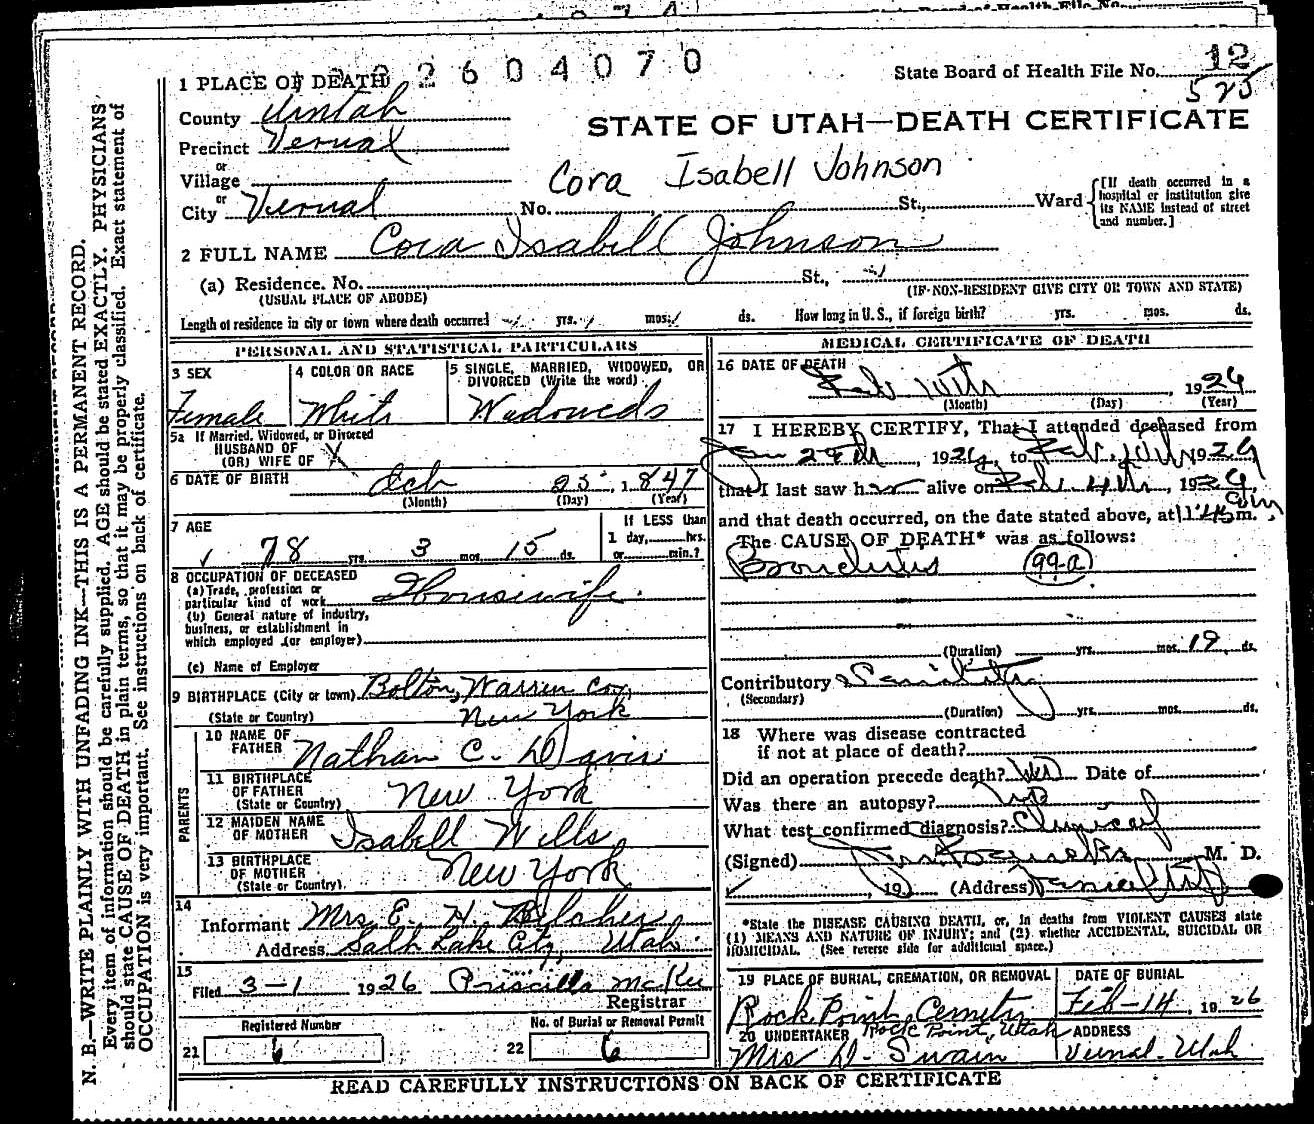 2 6 0 4 0 7 0
State Board of Health File No. 12
525
1 PLACE OF DEATH
County Uintah
Precinct Vernal
or
Village
or
City Vernal No. St., Ward
[If death occurred in a hospital or institution give its NAME instead of street and number.]
STATE OF UTAH—DEATH CERTIFICATE
Cora Isabell Johnson
2 FULL NAME Cora Isabell Johnson
(a) Residence. No. St.,
(USUAL PLACE OF ABODE) (IF NON-RESIDENT GIVE CITY OR TOWN AND STATE)
Length of residence in city or town where death occurred yrs. mos. ds. How long in U. S., if foreign birth? yrs. mos. ds.
PERSONAL AND STATISTICAL PARTICULARS
3 SEX
Female
4 COLOR OR RACE
White
5 SINGLE, MARRIED, WIDOWED, OR DIVORCED (Write the word)
5a If Married, Widowed, or Divorced
HUSBAND OF
(OR) WIFE OF
6 DATE OF BIRTH 25 1847
(Month) (Day) (Year)
7 AGE
78 yrs. 3 mos. 15 ds.
If LESS than
1 day, hrs.
or min.?
8 OCCUPATION OF DECEASED
(a) Trade, profession or
particular kind of work Housewife
(b) General nature of industry,
business, or establishment in
which employed (or employer)
(c) Name of Employer
9 BIRTHPLACE (City or town) Bolton, Warren Co,
(State or Country) New York
PARENTS
10 NAME OF FATHER Nathan C. Davis
11 BIRTHPLACE OF FATHER
(State or Country) New York
12 MAIDEN NAME OF MOTHER Isabell Wells
13 BIRTHPLACE OF MOTHER
(State or Country) New York
14
Informant Mrs. E. H. Belcher
Address Salt Lake City, Utah
15
Filed 3-1 1926 Priscilla McKee
Registrar
Registered Number
21 6
No. of Burial or Removal Permit
22 6
MEDICAL CERTIFICATE OF DEATH
16 DATE OF DEATH
Feb 1926
(Month) (Day) (Year)
17 I HEREBY CERTIFY, That I attended deceased from
Jan 1926, to Feb. 1926
that I last saw her alive on Feb. 192
and that death occurred, on the date stated above, at m.
The CAUSE OF DEATH* was as follows:
Bronchitis 99a
(Duration) yrs. mos. 19 ds.
Contributory Senility
(Secondary)
(Duration) yrs. mos. ds.
18 Where was disease contracted
if not at place of death?
Did an operation precede death? No Date of
Was there an autopsy? No
What test confirmed diagnosis? Clinical
(Signed) M. D.
, 19 (Address)
*State the DISEASE CAUSING DEATH, or, in deaths from VIOLENT CAUSES state
(1) MEANS AND NATURE OF INJURY; and (2) whether ACCIDENTAL, SUICIDAL OR
HOMICIDAL. (See reverse side for additional space.)
19 PLACE OF BURIAL, CREMATION, OR REMOVAL
Rock Point Cemetry
Rock Point, Utah
DATE OF BURIAL
Feb-14, 1926
20 UNDERTAKER
Mrs D. Swain
ADDRESS
Vernal-Utah
READ CAREFULLY INSTRUCTIONS ON BACK OF CERTIFICATE
N. B.—WRITE PLAINLY WITH UNFADING INK—THIS IS A PERMANENT RECORD.
Every item of information should be carefully supplied. AGE should be stated EXACTLY. PHYSICIANS
should state CAUSE OF DEATH in plain terms, so that it may be properly classified. Exact statement of
OCCUPATION is very important. See instructions on back of certificate.